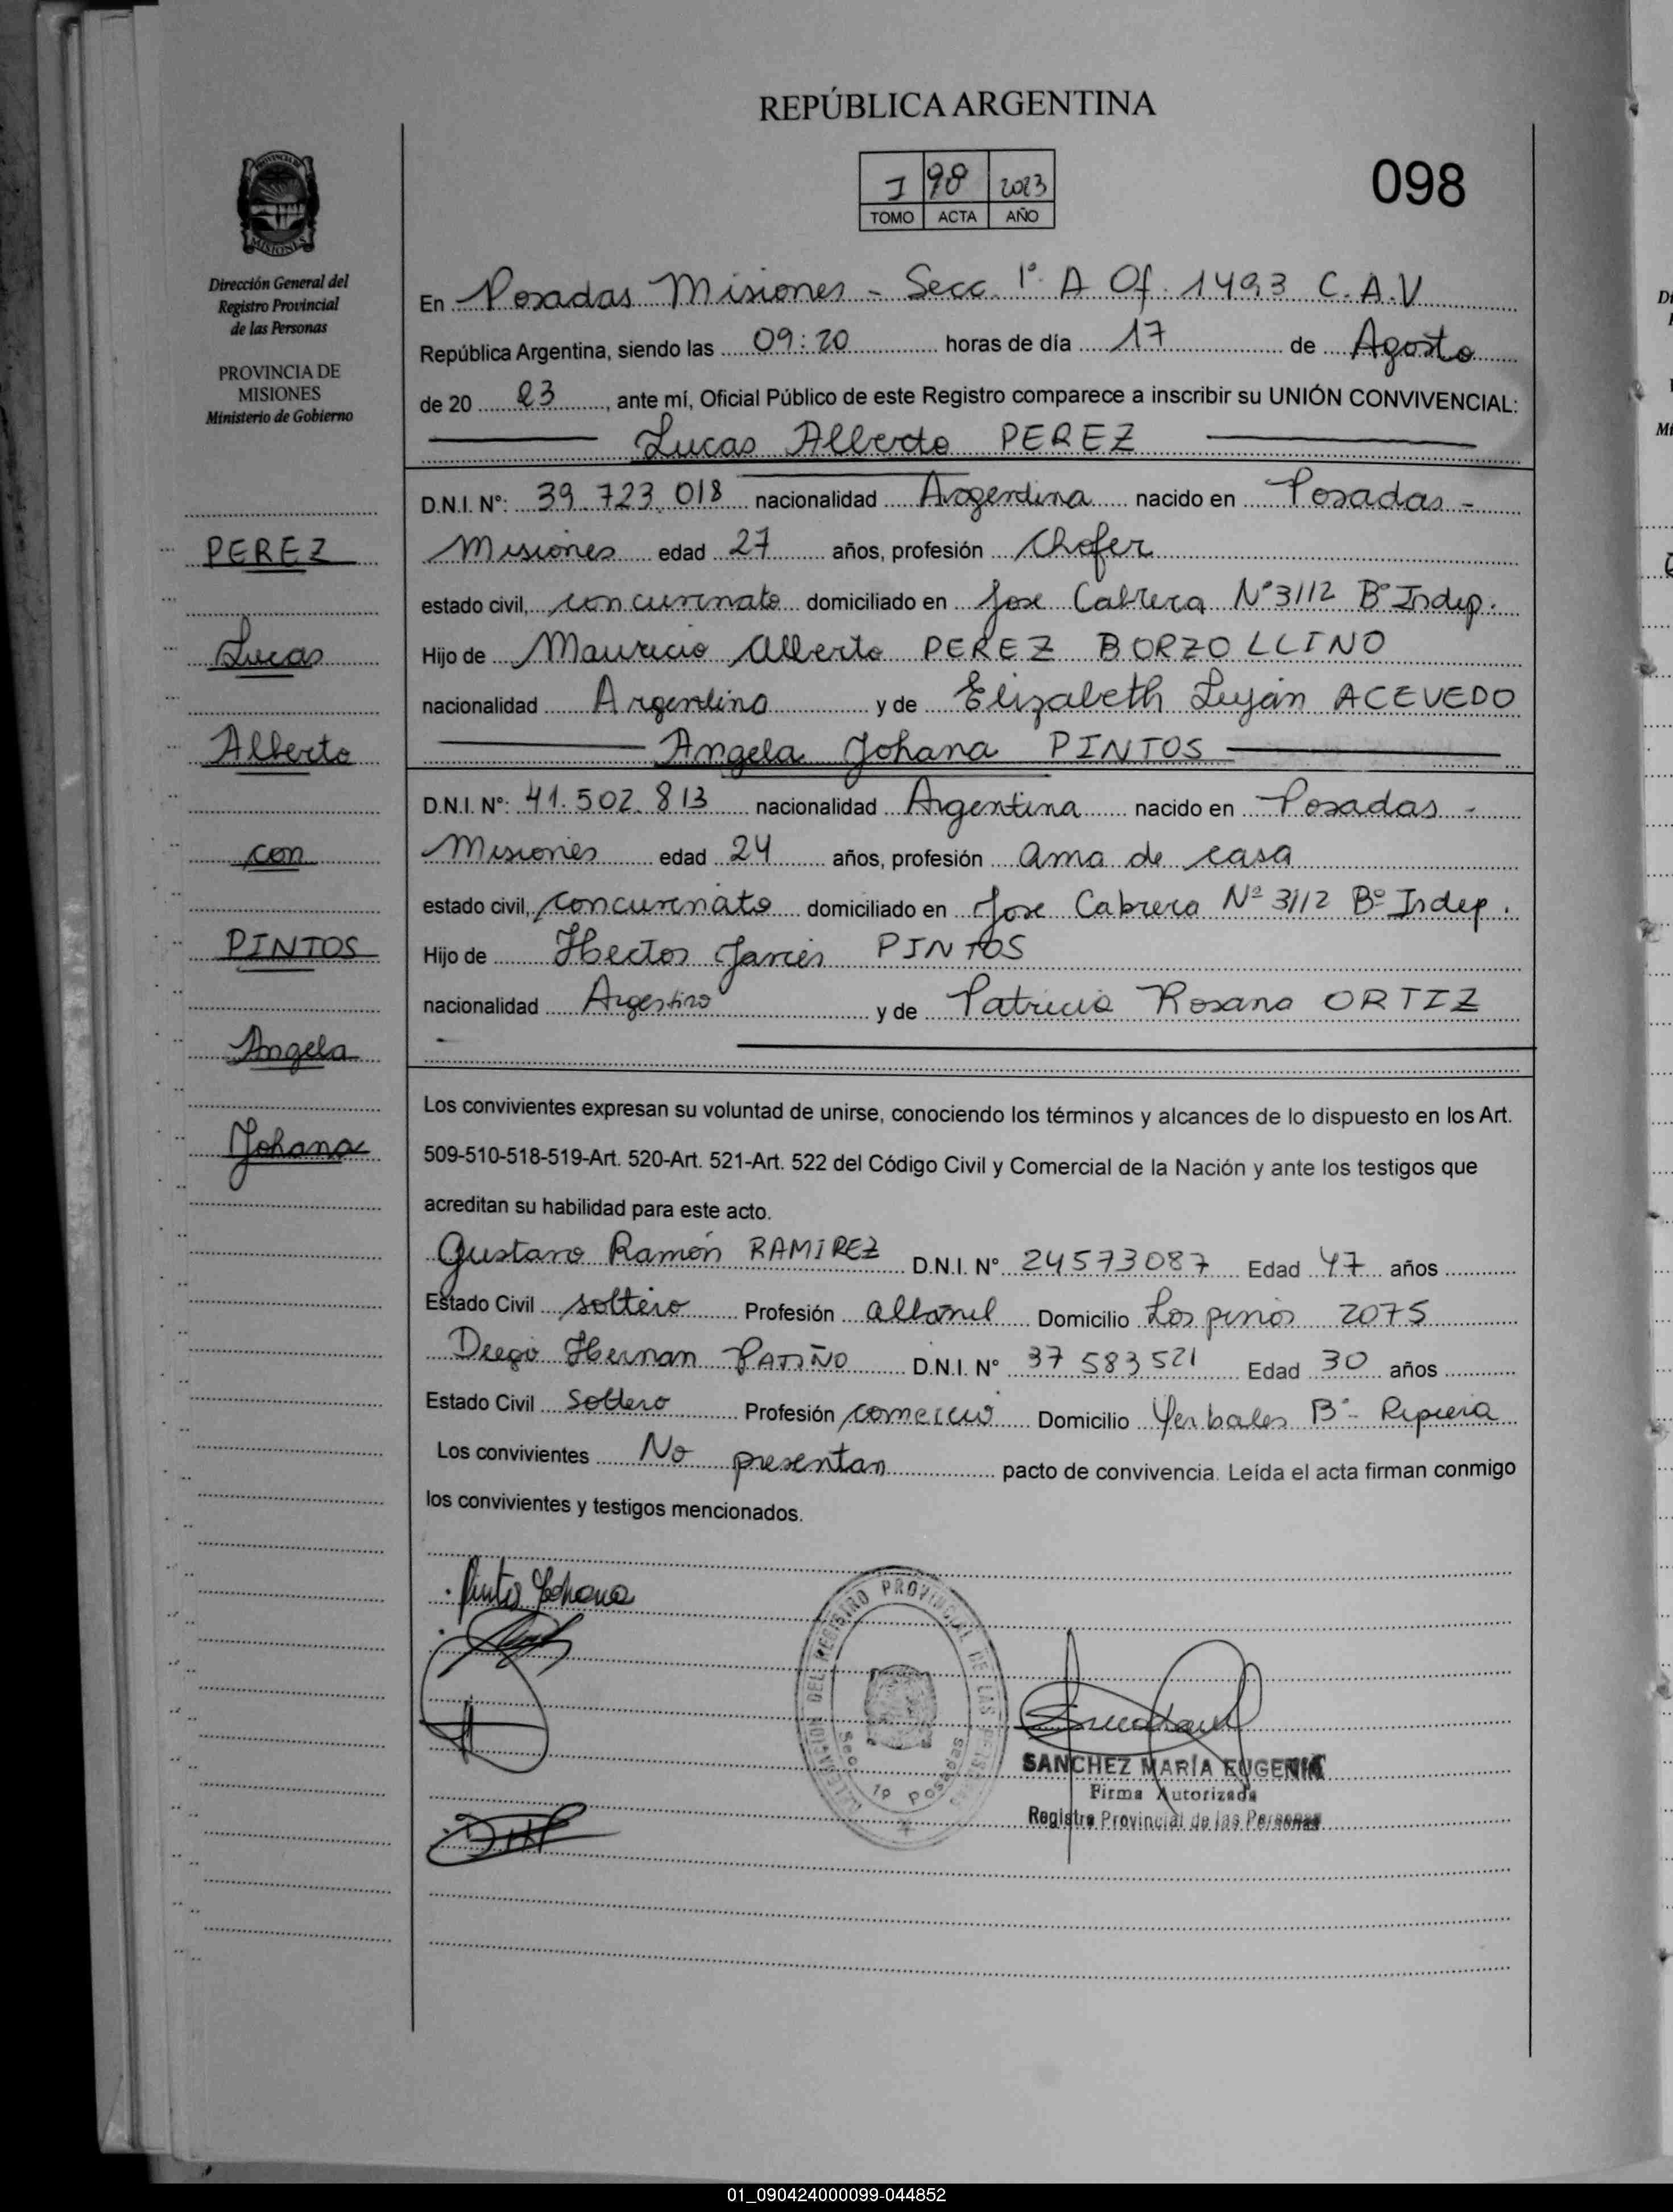 REPÚBLICA ARGENTINA
PROVINCIA DE
MISIONES
Dirección General del
Registro Provincial
de las Personas
PROVINCIA DE
MISIONES
Ministerio de Gobierno
PEREZ
Lucas
Alberto
con
PINTOS
Angela
Johana
I 98 2023
TOMO ACTA AÑO
098
En Posadas Misiones - Secc. 1º A Of. 1493 C.A.V
República Argentina, siendo las 09:20 horas de día 17 de Agosto
de 20 23, ante mí, Oficial Público de este Registro comparece a inscribir su UNIÓN CONVIVENCIAL:
Lucas Alberto PEREZ
D.N.I. Nº: 39.723.018 nacionalidad Argentina nacido en Posadas -
Misiones edad 27 años, profesión Chofer
estado civil, concuvinato domiciliado en Jose Cabrera Nº 3112 Bº Indep.
Hijo de Mauricio Alberto PEREZ BORZOLLINO
nacionalidad Argentino y de Elizabeth Luján ACEVEDO
Angela Johana PINTOS
D.N.I. Nº: 41.502.813 nacionalidad Argentina nacido en Posadas -
Misiones edad 24 años, profesión ama de casa
estado civil, concuvinato domiciliado en Jose Cabrera Nº 3112 Bº Indep.
Hijo de Hector PINTOS
nacionalidad Argentino y de Patricia Rosana ORTIZ
Los convivientes expresan su voluntad de unirse, conociendo los términos y alcances de lo dispuesto en los Art.
509-510-518-519-Art. 520-Art. 521-Art. 522 del Código Civil y Comercial de la Nación y ante los testigos que
acreditan su habilidad para este acto.
Gustavo Ramón RAMIREZ D.N.I. Nº 24573087 Edad 47 años
Estado Civil soltero Profesión albañil Domicilio Los pinos 2075
Diego Hernan PATIÑO D.N.I. Nº 37583521 Edad 30 años
Estado Civil Soltero Profesión comercio Domicilio Yerbales Bº- Ripiera
Los convivientes No presentan pacto de convivencia. Leída el acta firman conmigo
los convivientes y testigos mencionados.
Pintos Johana
DELEGACION DEL REGISTRO PROVINCIAL DE LAS PERSONAS
Sec. 1º Posadas
SANCHEZ MARÍA EUGENIA
Firma Autorizada
Registro Provincial de las Personas
01_090424000099-044852